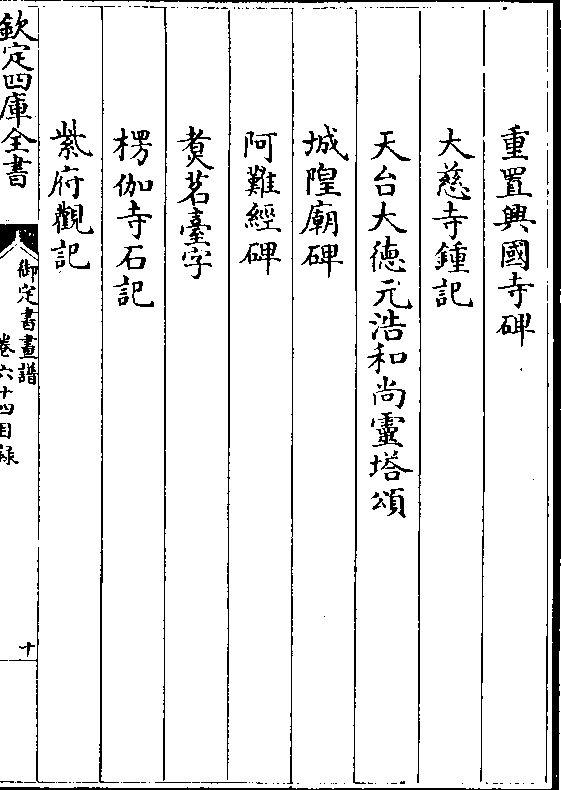 重置興國寺碑
大慈寺鍾記
天台大德元浩和尚靈塔頌
城隍廟碑
阿難經碑
煑茗臺字
楞伽寺石記
紫府觀記
欽定四庫全書
御定書畫譜
卷六十四目錄
十